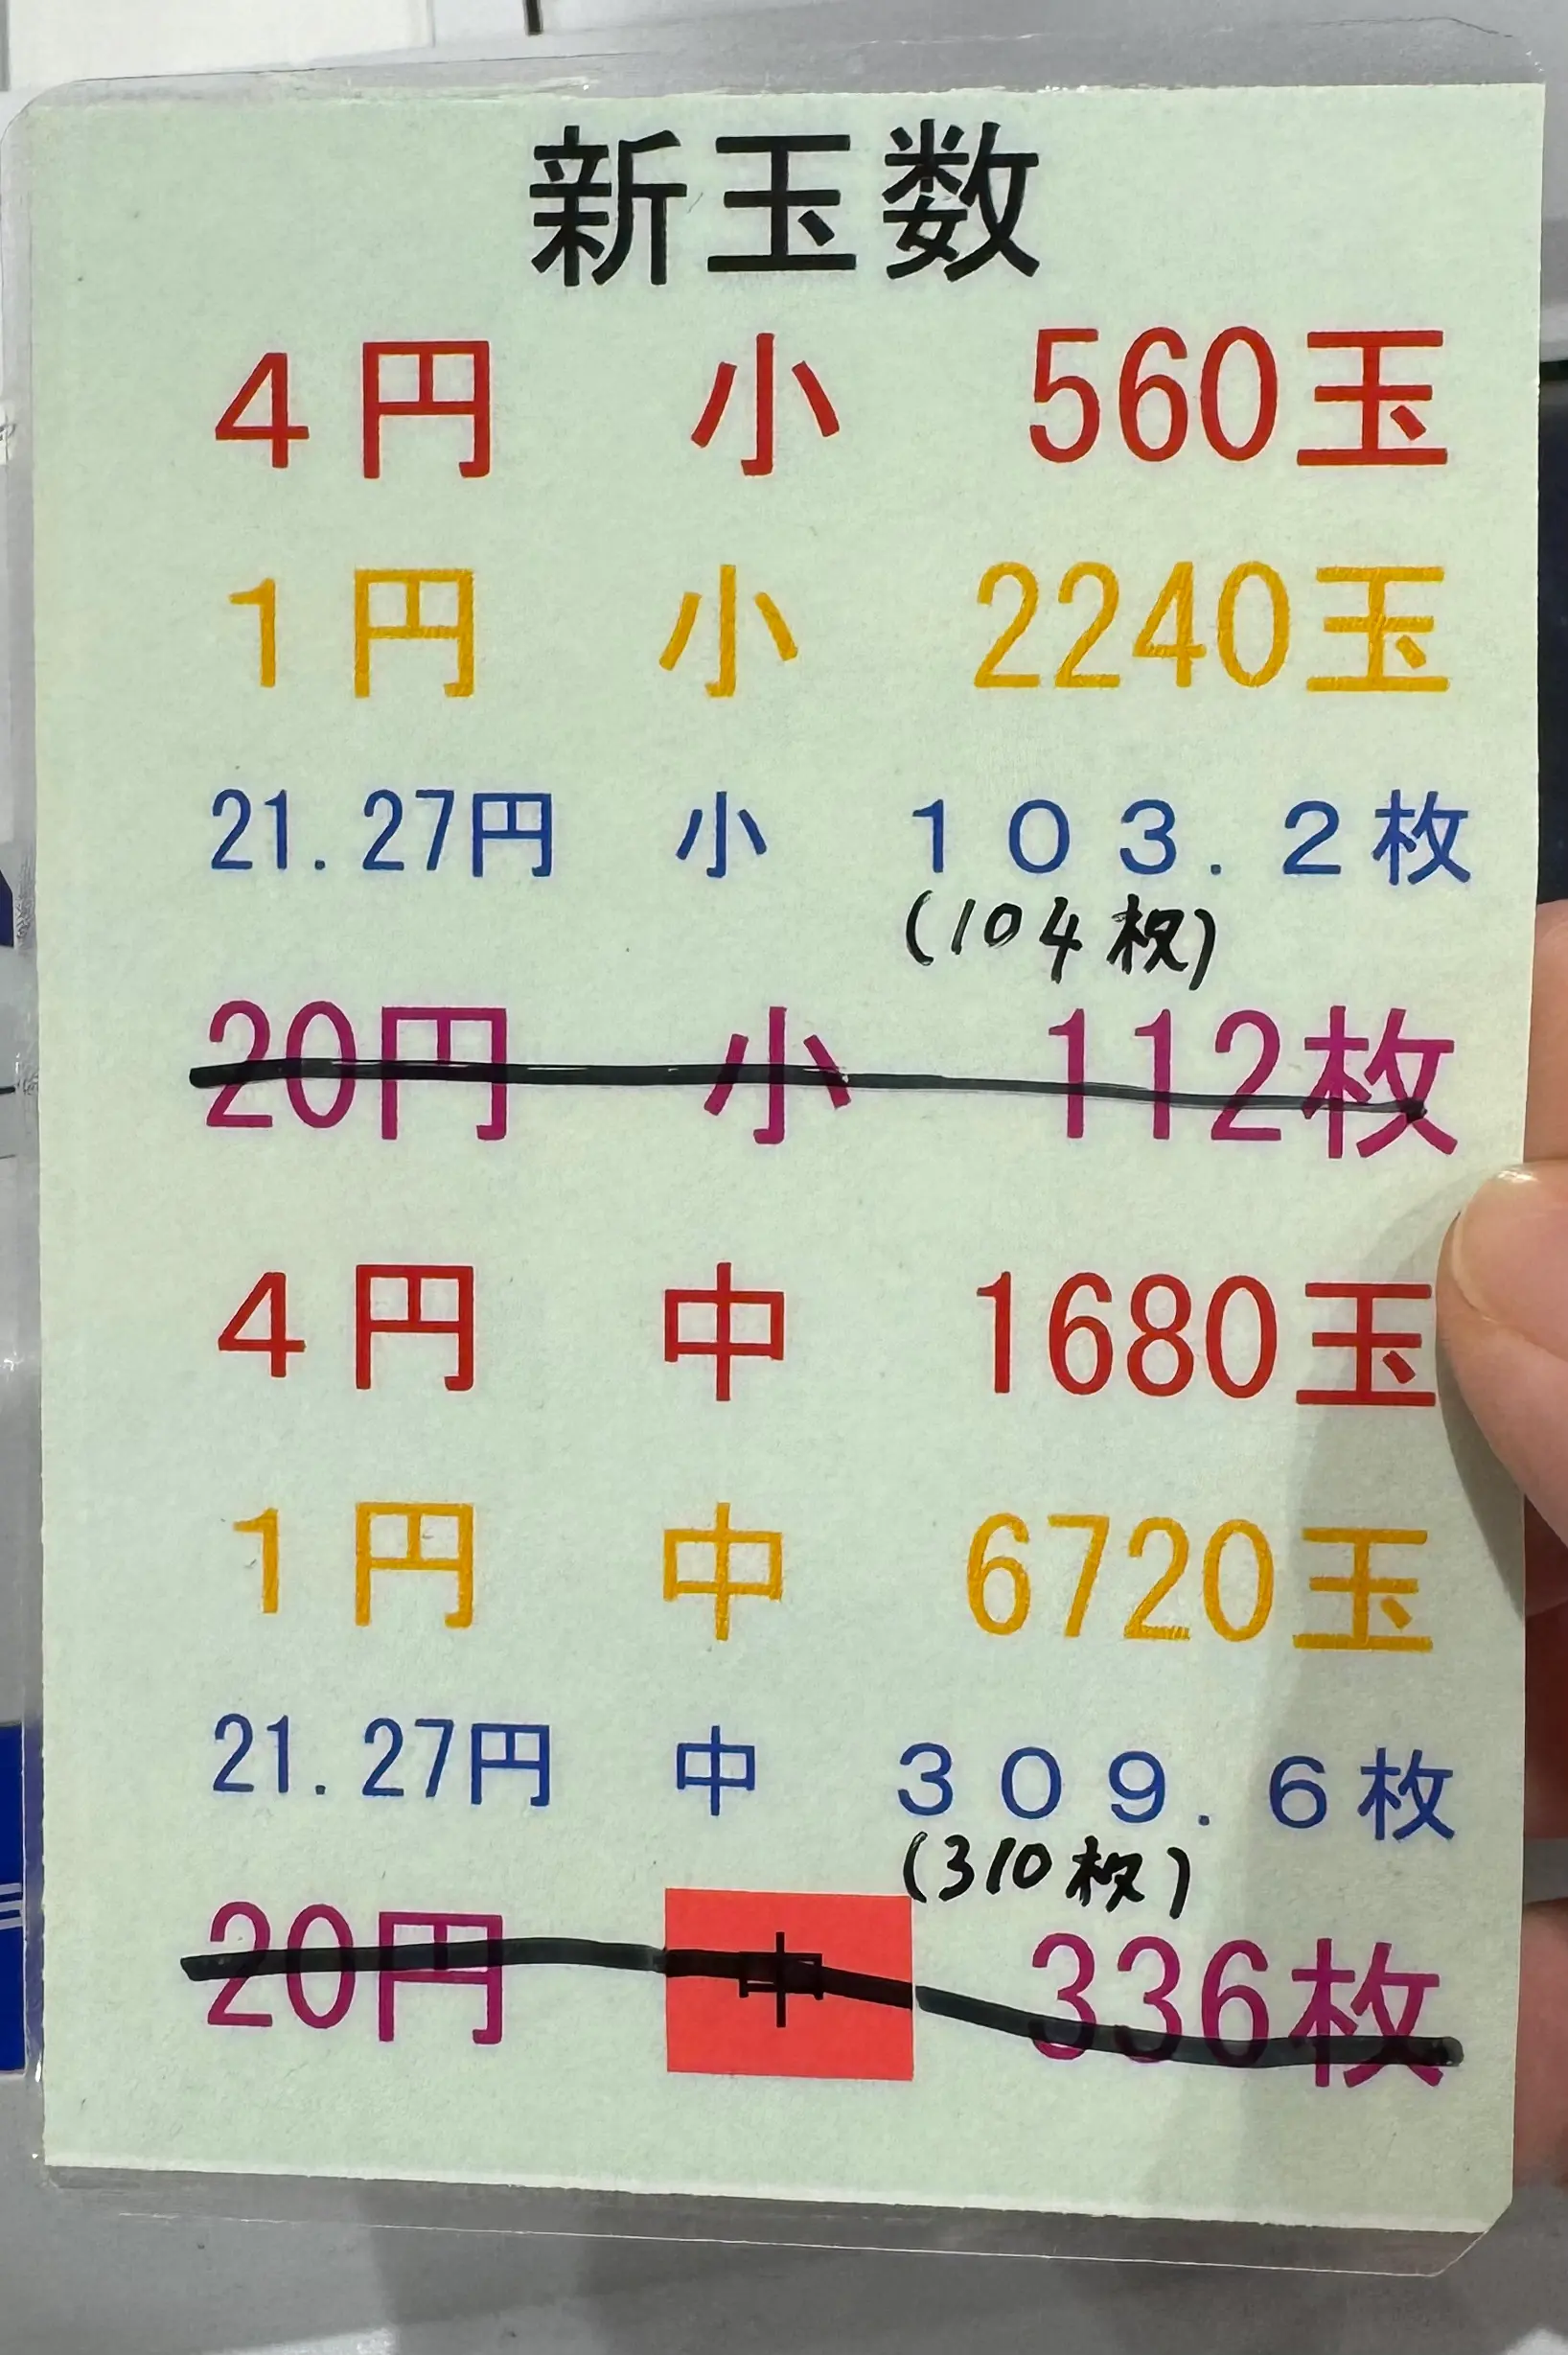 新玉数
4円 小 560玉
1円 小 2240玉
21.27円 小 103.2枚
(104枚)
20円 小 112枚
4円 中 1680玉
1円 中 6720玉
21.27円 中 309.6枚
(310枚)
20円 中 336枚